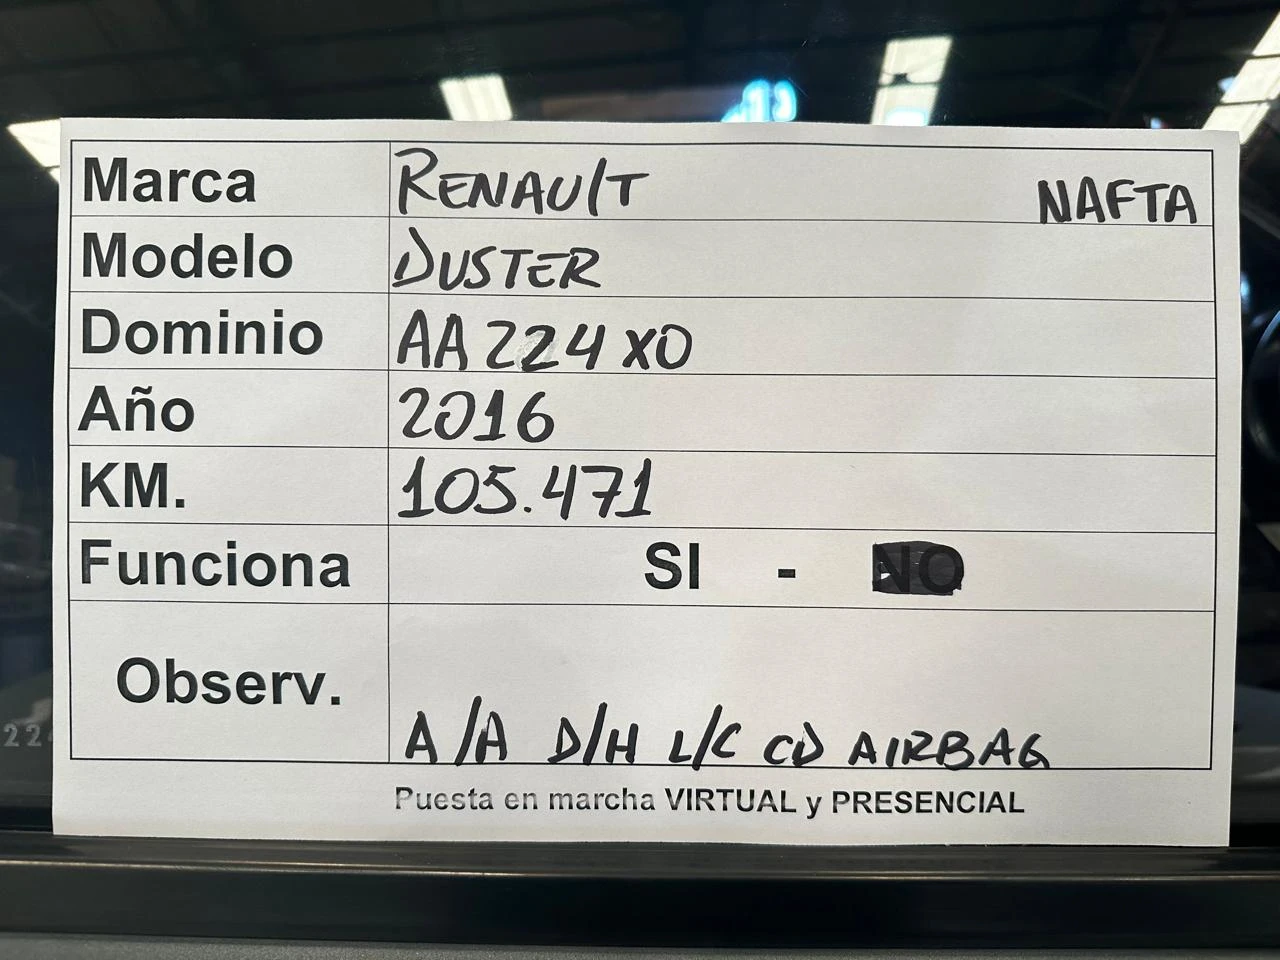 Marca RENAULT NAFTA
Modelo DUSTER
Dominio AA224XO
Año 2016
KM. 105.471
Funciona SI - NO
Observ. A/A D/H L/C CD AIRBAG
Puesta en marcha VIRTUAL y PRESENCIAL
224